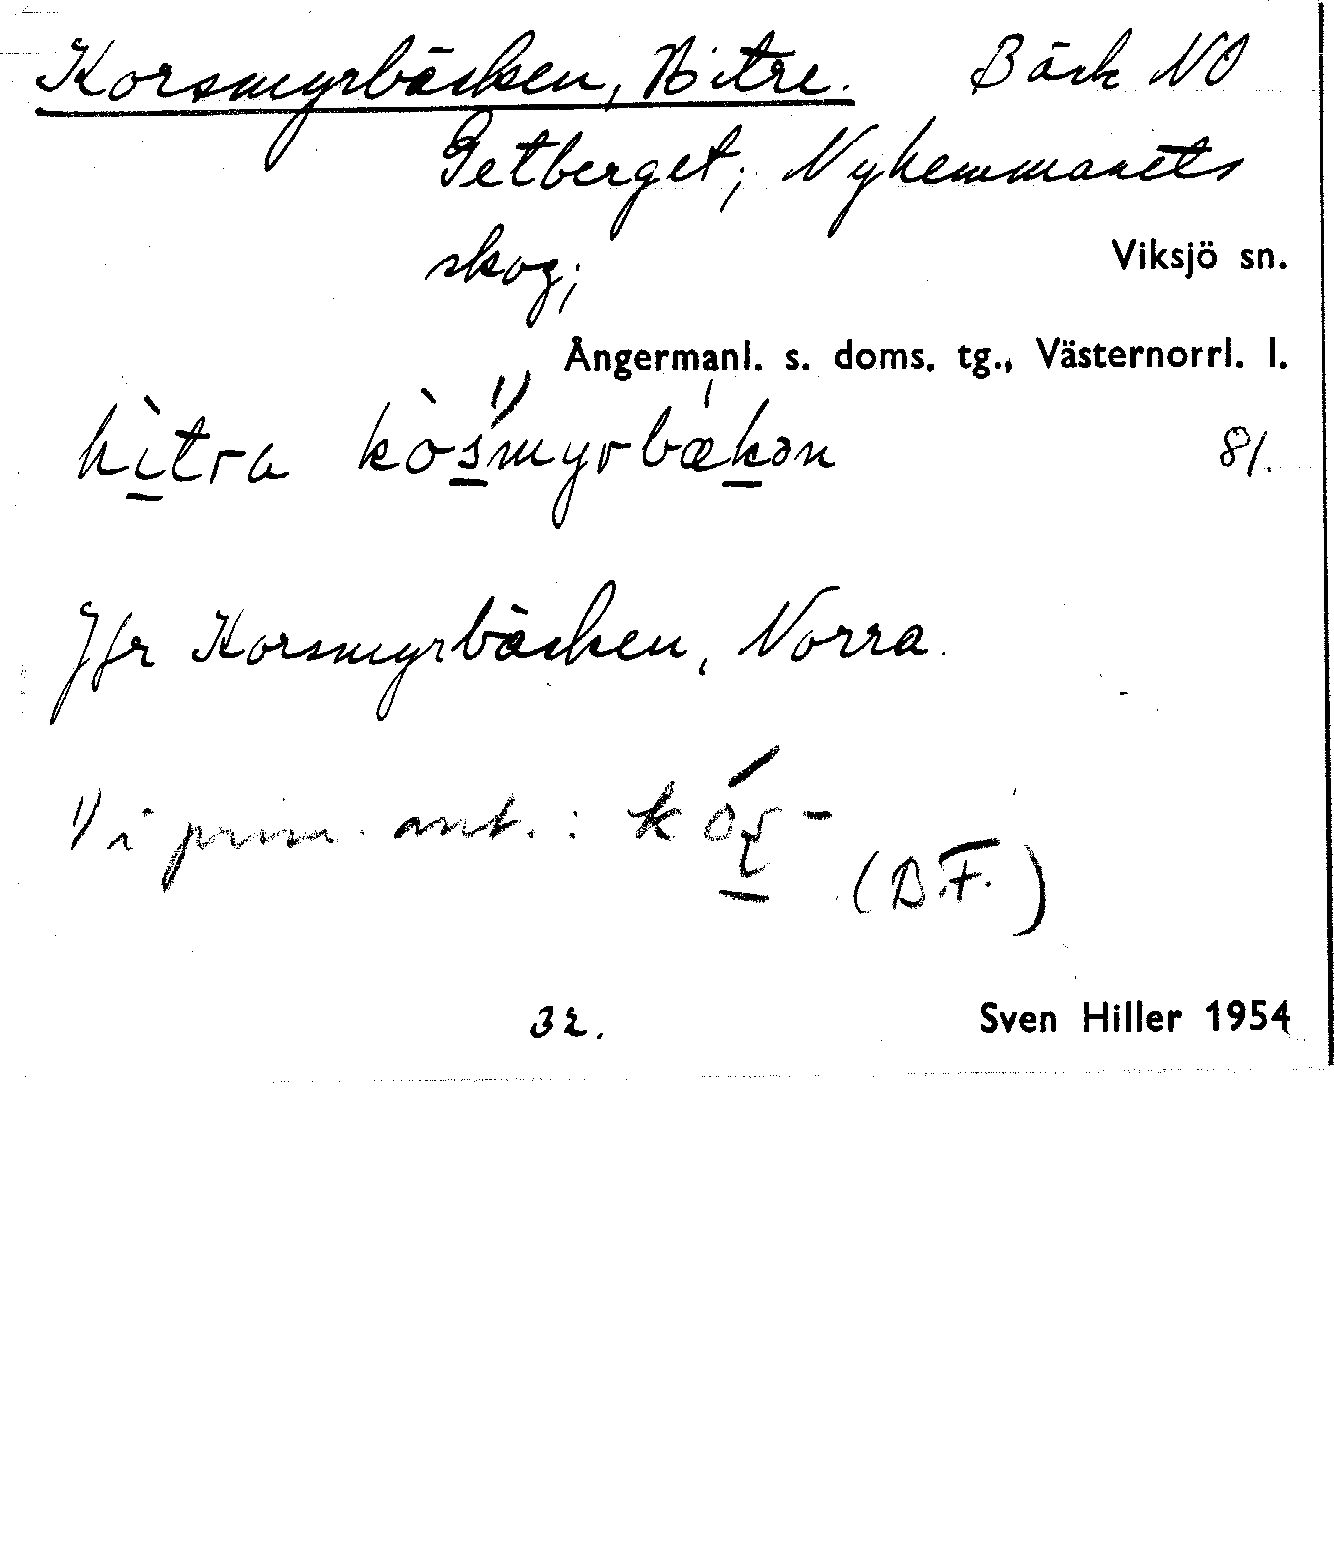 Korsmyrbäcken, Hitre. Bäck NO
Getberget; Nyhemmanets
skog;
Viksjö sn.
Ångermanl. s. doms. tg., Västernorrl. l.
hìtra kòs̀myrbækən 81.
Jfr Korsmyrbäcken, Norra.
1) i prim. ant.:
(B.F.)
32. Sven Hiller 1954